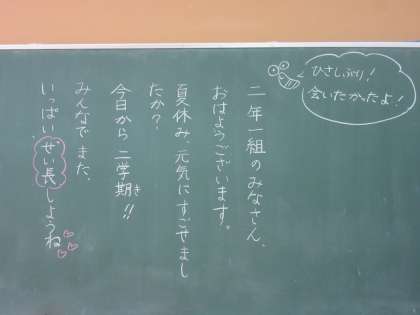 ひさしぶり!
会いたかったよ!
二年一組のみなさん、
おはようございます。
夏休み、元気にすごせまし
たか?
今日から二学期!!
き
みんなでまた、
いっぱいせい長しようね